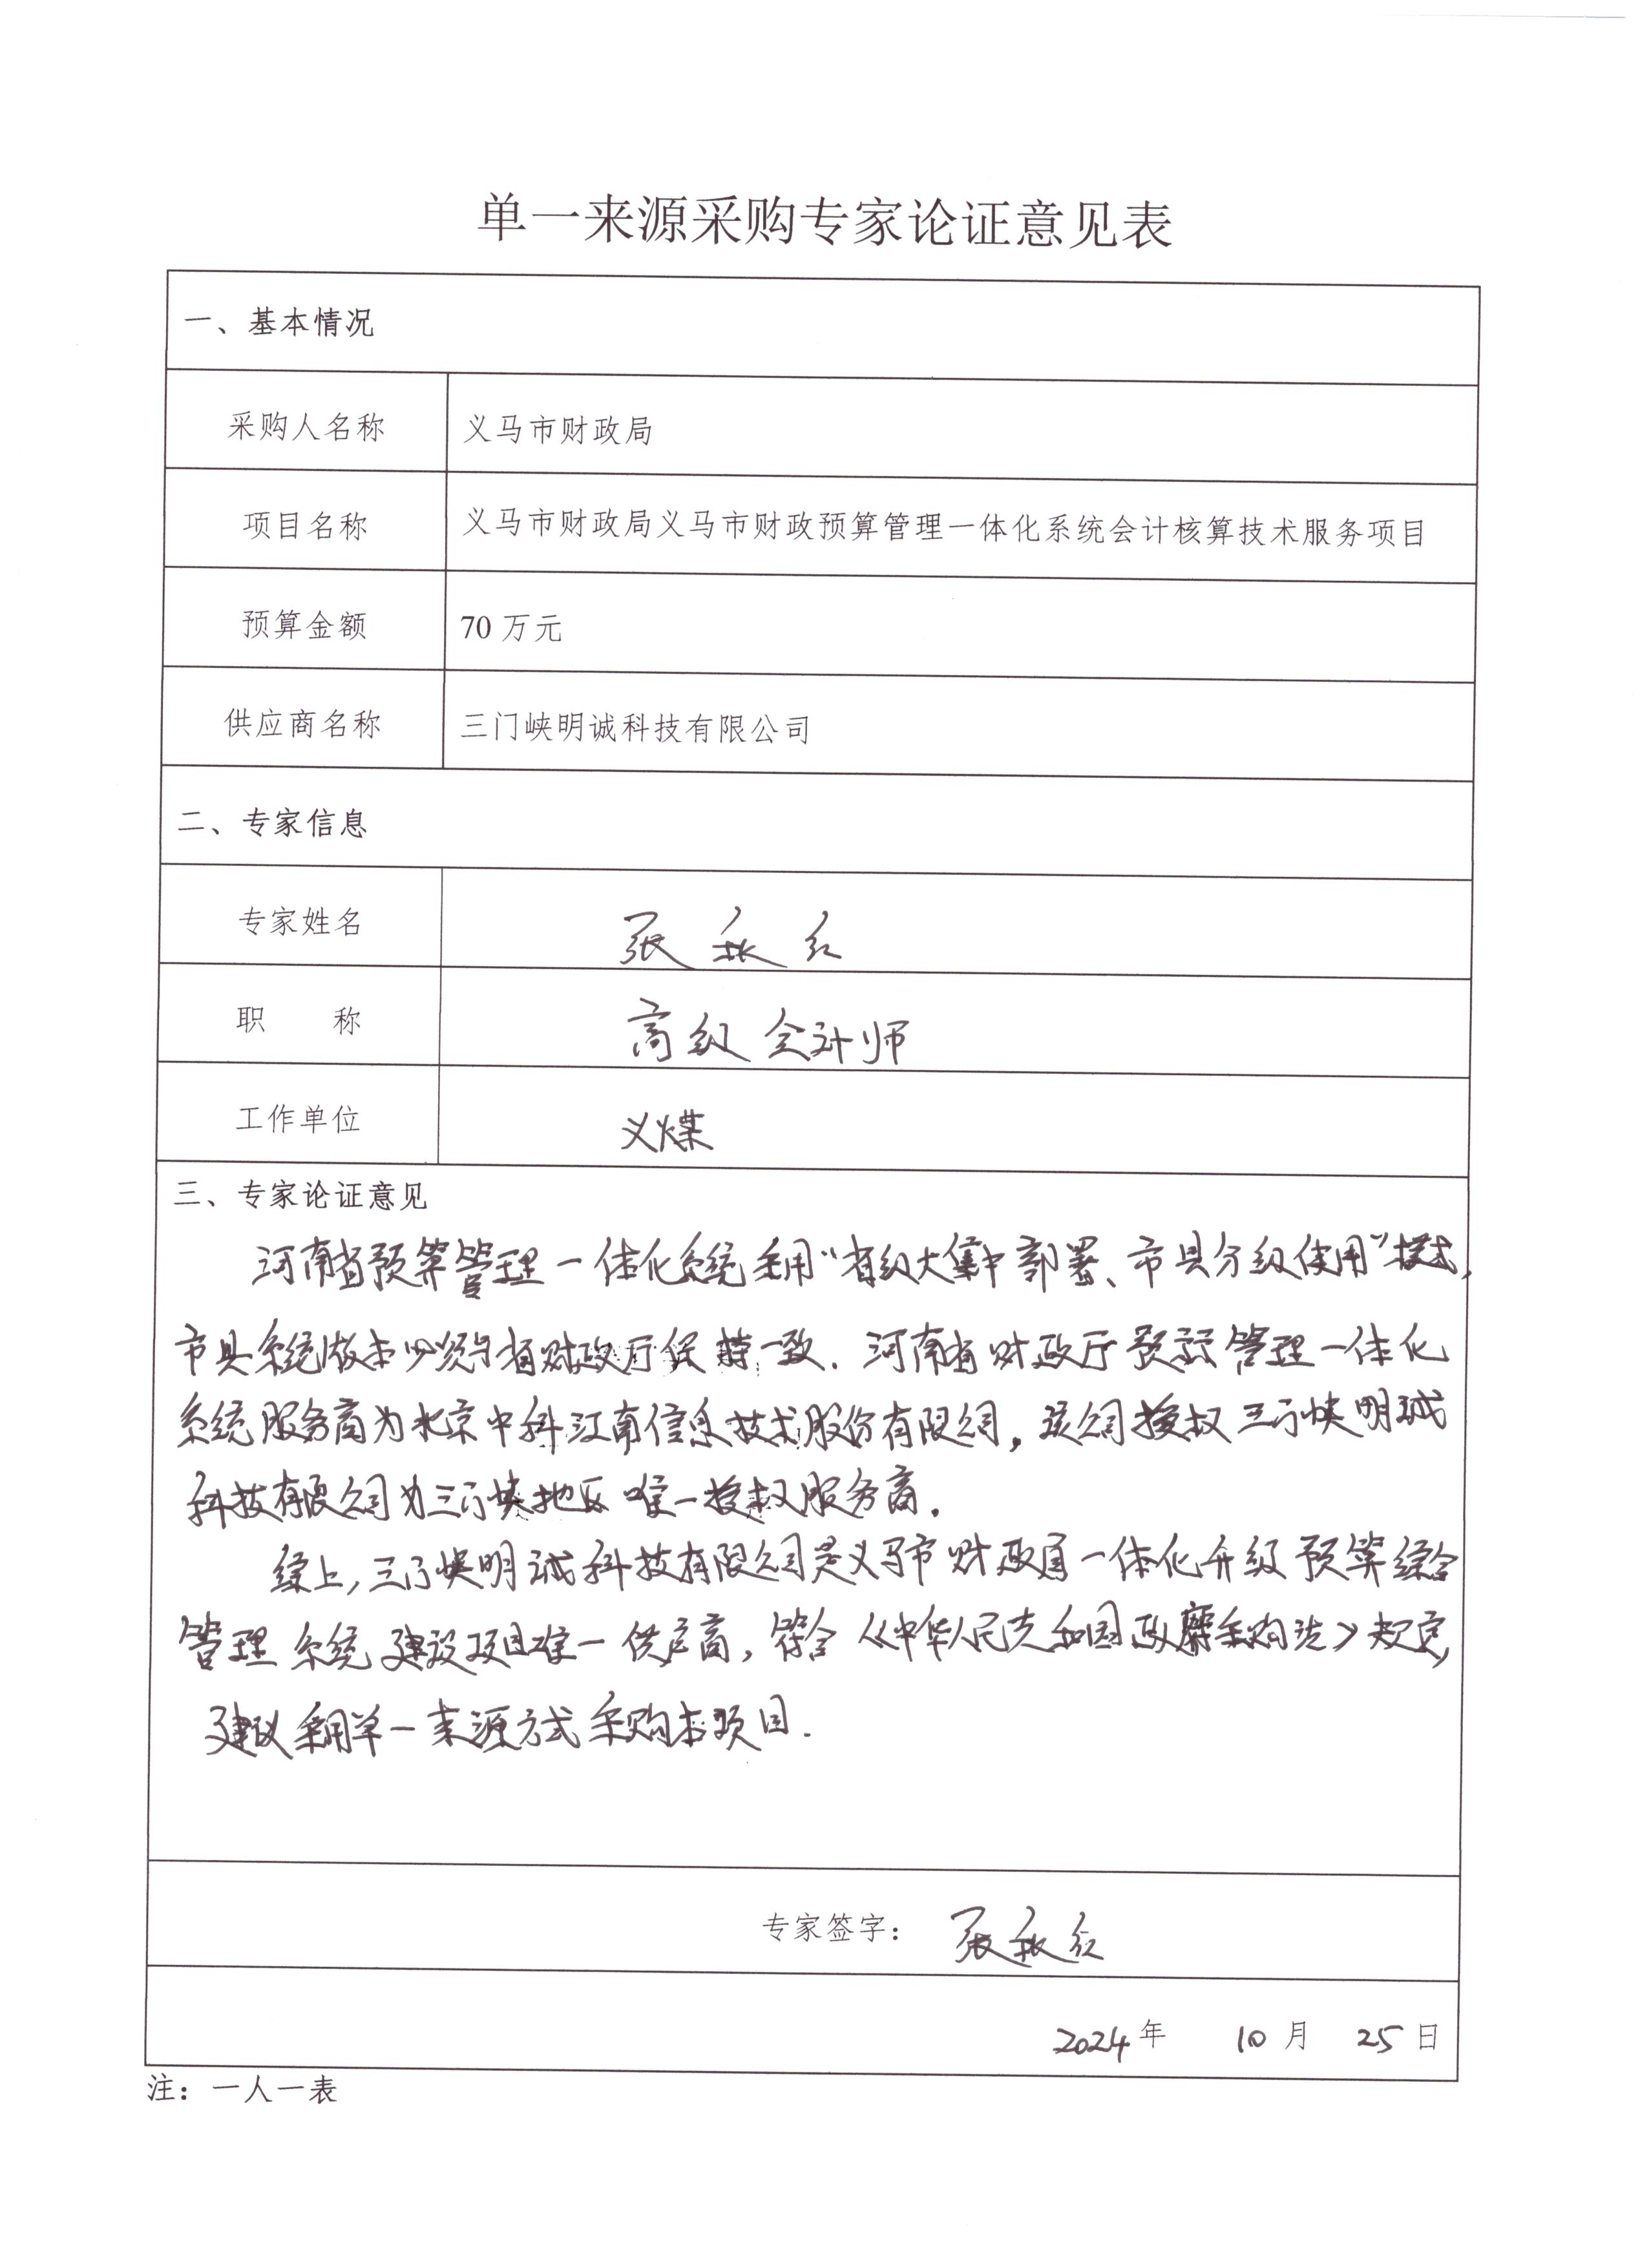 单一来源采购专家论证意见表
一、基本情况
采购人名称 义马市财政局
项目名称 义马市财政局义马市财政预算管理一体化系统会计核算技术服务项目
预算金额 70万元
供应商名称 三门峡明诚科技有限公司
二、专家信息
专家姓名 张秋红
职 称 高级会计师
工作单位 义煤
三、专家论证意见
河南省预算管理一体化系统采用“省级大集中部署、市县分级使用”模式,
市县系统版本必须与省财政厅保持一致.河南省财政厅预算管理一体化
系统服务商为北京中科江南信息技术股份有限公司,该公司授权三门峡明诚
科技有限公司为三门峡地区唯一授权服务商.
综上,三门峡明诚科技有限公司是义马市财政局一体化升级预算综合
管理系统建设项目唯一供应商,符合《中华人民共和国政府采购法》规定,
建议采用单一来源方式采购本项目.
专家签字: 张秋红
2024年 10月 25日
注:一人一表